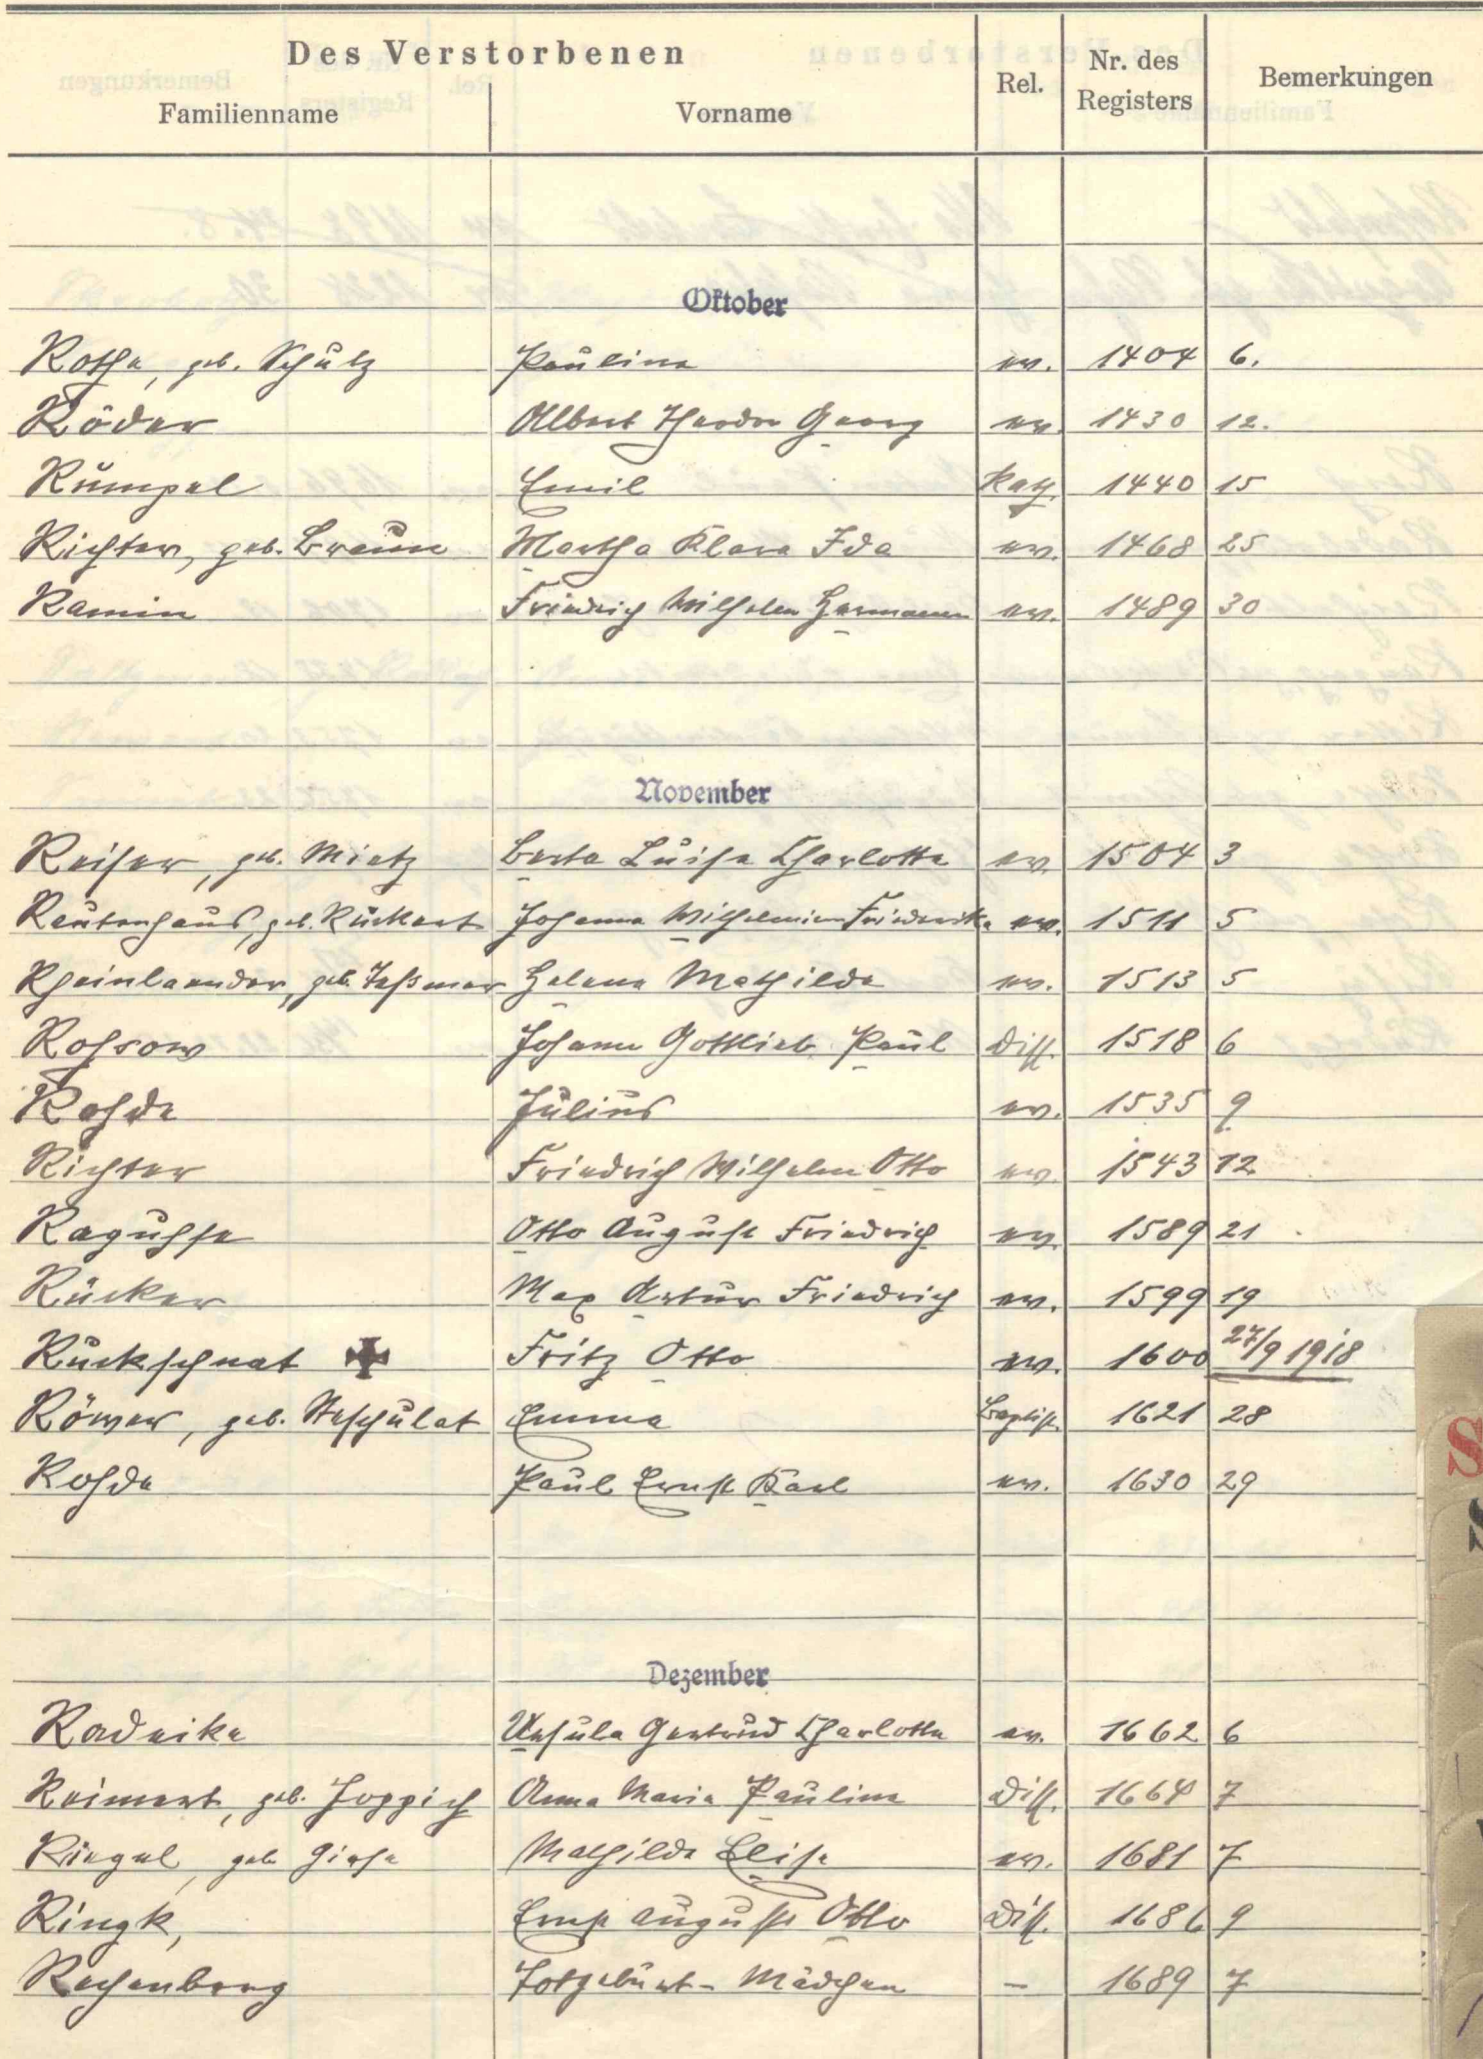 Des Verstorbenen
Familienname Vorname Rel. Nr. des Registers Bemerkungen
Oktober
Rothe, geb. Schulz Pauline ev. 1404 6.
Röder Albert Theodor Georg ev. 1430 12.
Rumpel Emil Kath. 1440 15
Richter, geb. Braun Martha Klara Ida ev. 1468 25
Ramin Friedrich Wilhelm Hermann ev. 1489 30
November
Reiser, geb. Mietz Berta Luise Charlotte ev. 1504 3
Rautenhaus, geb. Rückert Johanna Wilhelmine Friederike ev. 1511 5
Rheinlaender, geb. Helene Mathilde ev. 1513 5
Rohsow Johann Gottlieb Paul Diss. 1518 6
Rohde Julius ev. 1535 9
Richter Friedrich Wilhelm Otto ev. 1543 12
Ragusse Otto August Friedrich ev. 1589 21
Rücker Max Artur Friedrich ev. 1599 19
Ruckschnat Fritz Otto ev. 1600 27/9 1918
Römer, geb. Emma Baptist. 1621 28
Rohde Paul Ernst Karl ev. 1630 29
Dezember
Radeike Ursula Gertrud Charlotte ev. 1662 6
Reimert, geb. Joppich Anna Maria Pauline Diss. 1664 7
Riegel, geb. Giese Mathilde Elise ev. 1681 7
Ringk, Ernst August Otto Diss. 1686 9
Rechenberg Totgeburt - Mädchen — 1689 7